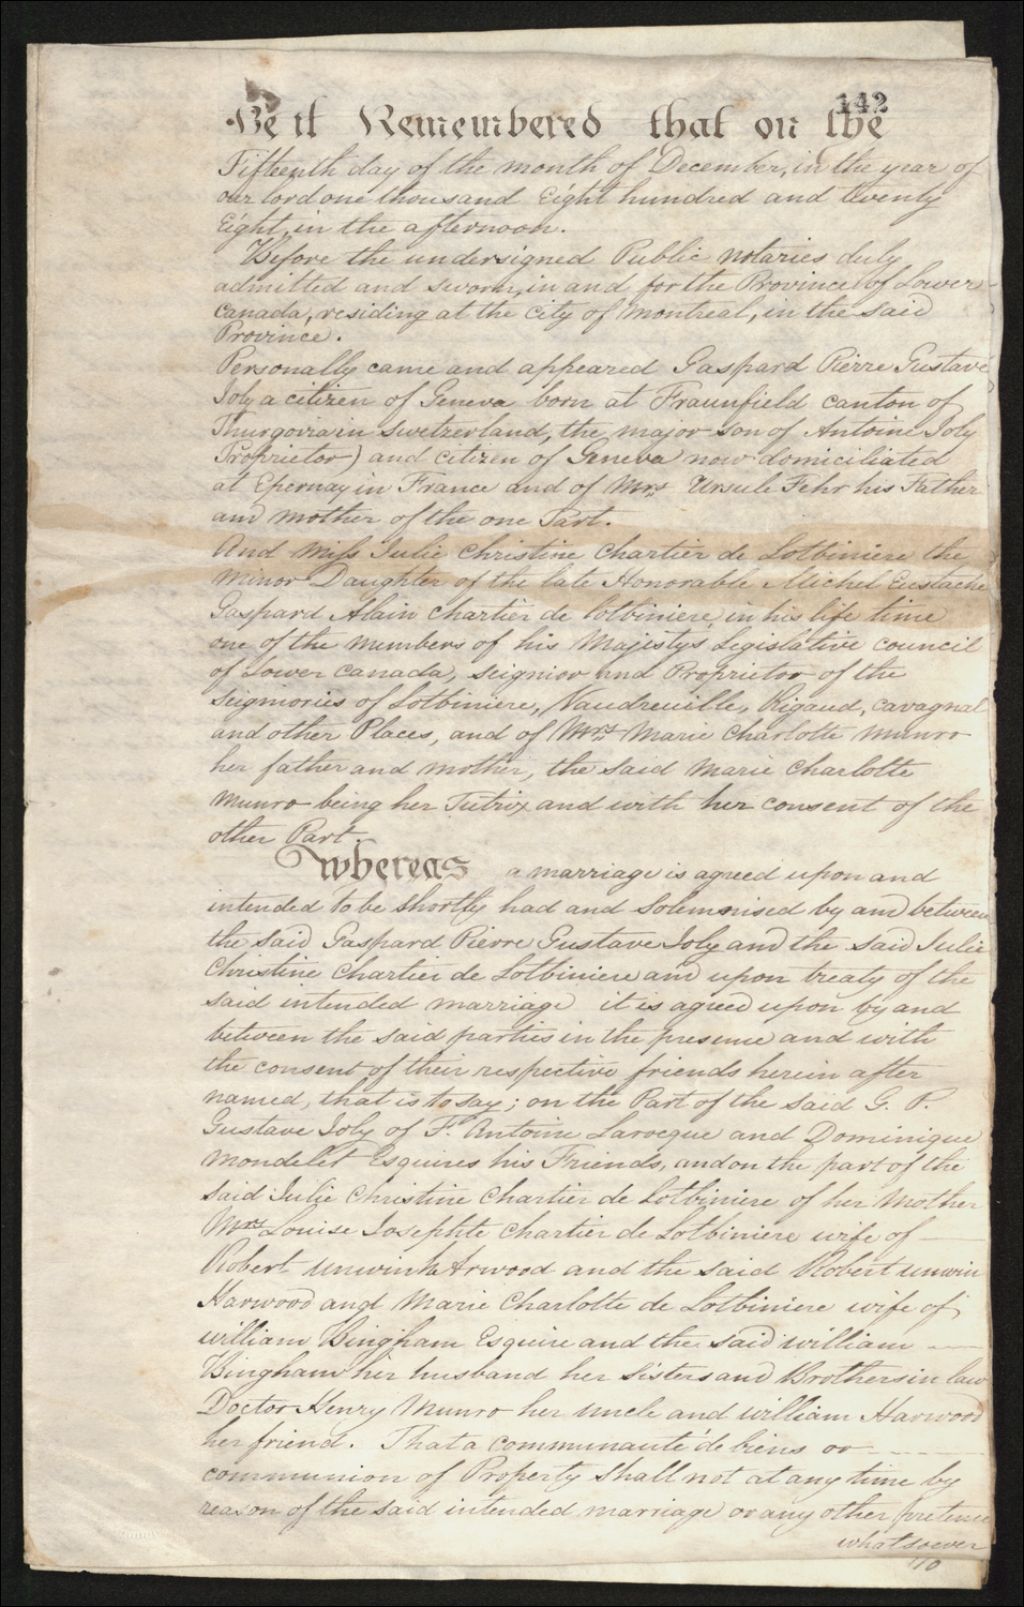 142
Be it Remembered that on the
Fifteenth day of the month of December, in the year of
our lord one thousand Eight hundred and twenty
Eight, in the afternoon.
Before the undersigned Public notaries duly
admitted and sworn, in and for the Province of Lower
Canada, residing at the city of montreal, in the said
Province.
Personally came and appeared Gaspard Pierre Gustave
Joly a citizen of Geneva born at Fraunfield canton of
Thurgovia in Swetzerland, the major son of Antoine Joly
Proprietor) and citizen of Geneva now domiciliated
at Epernay in France and of Mrs. Ursule Fehr his Father
and mother of the one Part.
And Miss Julie Christine Chartier de Lotbiniere the
Minor Daughter of the late Honorable Michel Eustache
Gaspard Alain Chartier de lotbiniere, in his life time
one of the members of his Majestys Legislative council
of Lower Canada, seignior and Proprietor of the
Seigniories of Lotbiniere, Vaudreuille, Rigaud, cavagnal
and other Places, and of Mrs. Marie Charlotte Munro
her father and mother, the said Marie Charlotte
Munro being her Tutrix and with her consent of the
other Part.
Whereas a marriage is agreed upon and
intended to be shortly had and solemnised by and between
the said Gaspard Pierre Gustave Joly and the said Julie
Christine Chartier de Lotbiniere and upon treaty of the
said intended marriage it is agreed upon by and
between the said parties in the presence and with
the consent of their respective friends herein after
named, that is to say; on the Part of the said G. P.
Gustave Joly of Fs. Antoine Larocque and Dominique
Mondelet Esquires his Friends, and on the part of the
said Julie Christine Chartier de Lotbiniere of her Mother
Mrs. Louise Josephte Chartier de Lotbiniere wife of
Robert Unwin Harwood and the said Robert unwin
Harwood and Marie Charlotte de Lotbiniere wife of
william Bingham Esquire and the said william
Bingham her husband her Sisters and Brothers in law
Doctor Henry Munro her uncle and william Harwood
her friend. That a communauté de biens or
communion of Property shall not at any time by
reason of the said intended marriage or any other pretence
whatsoever